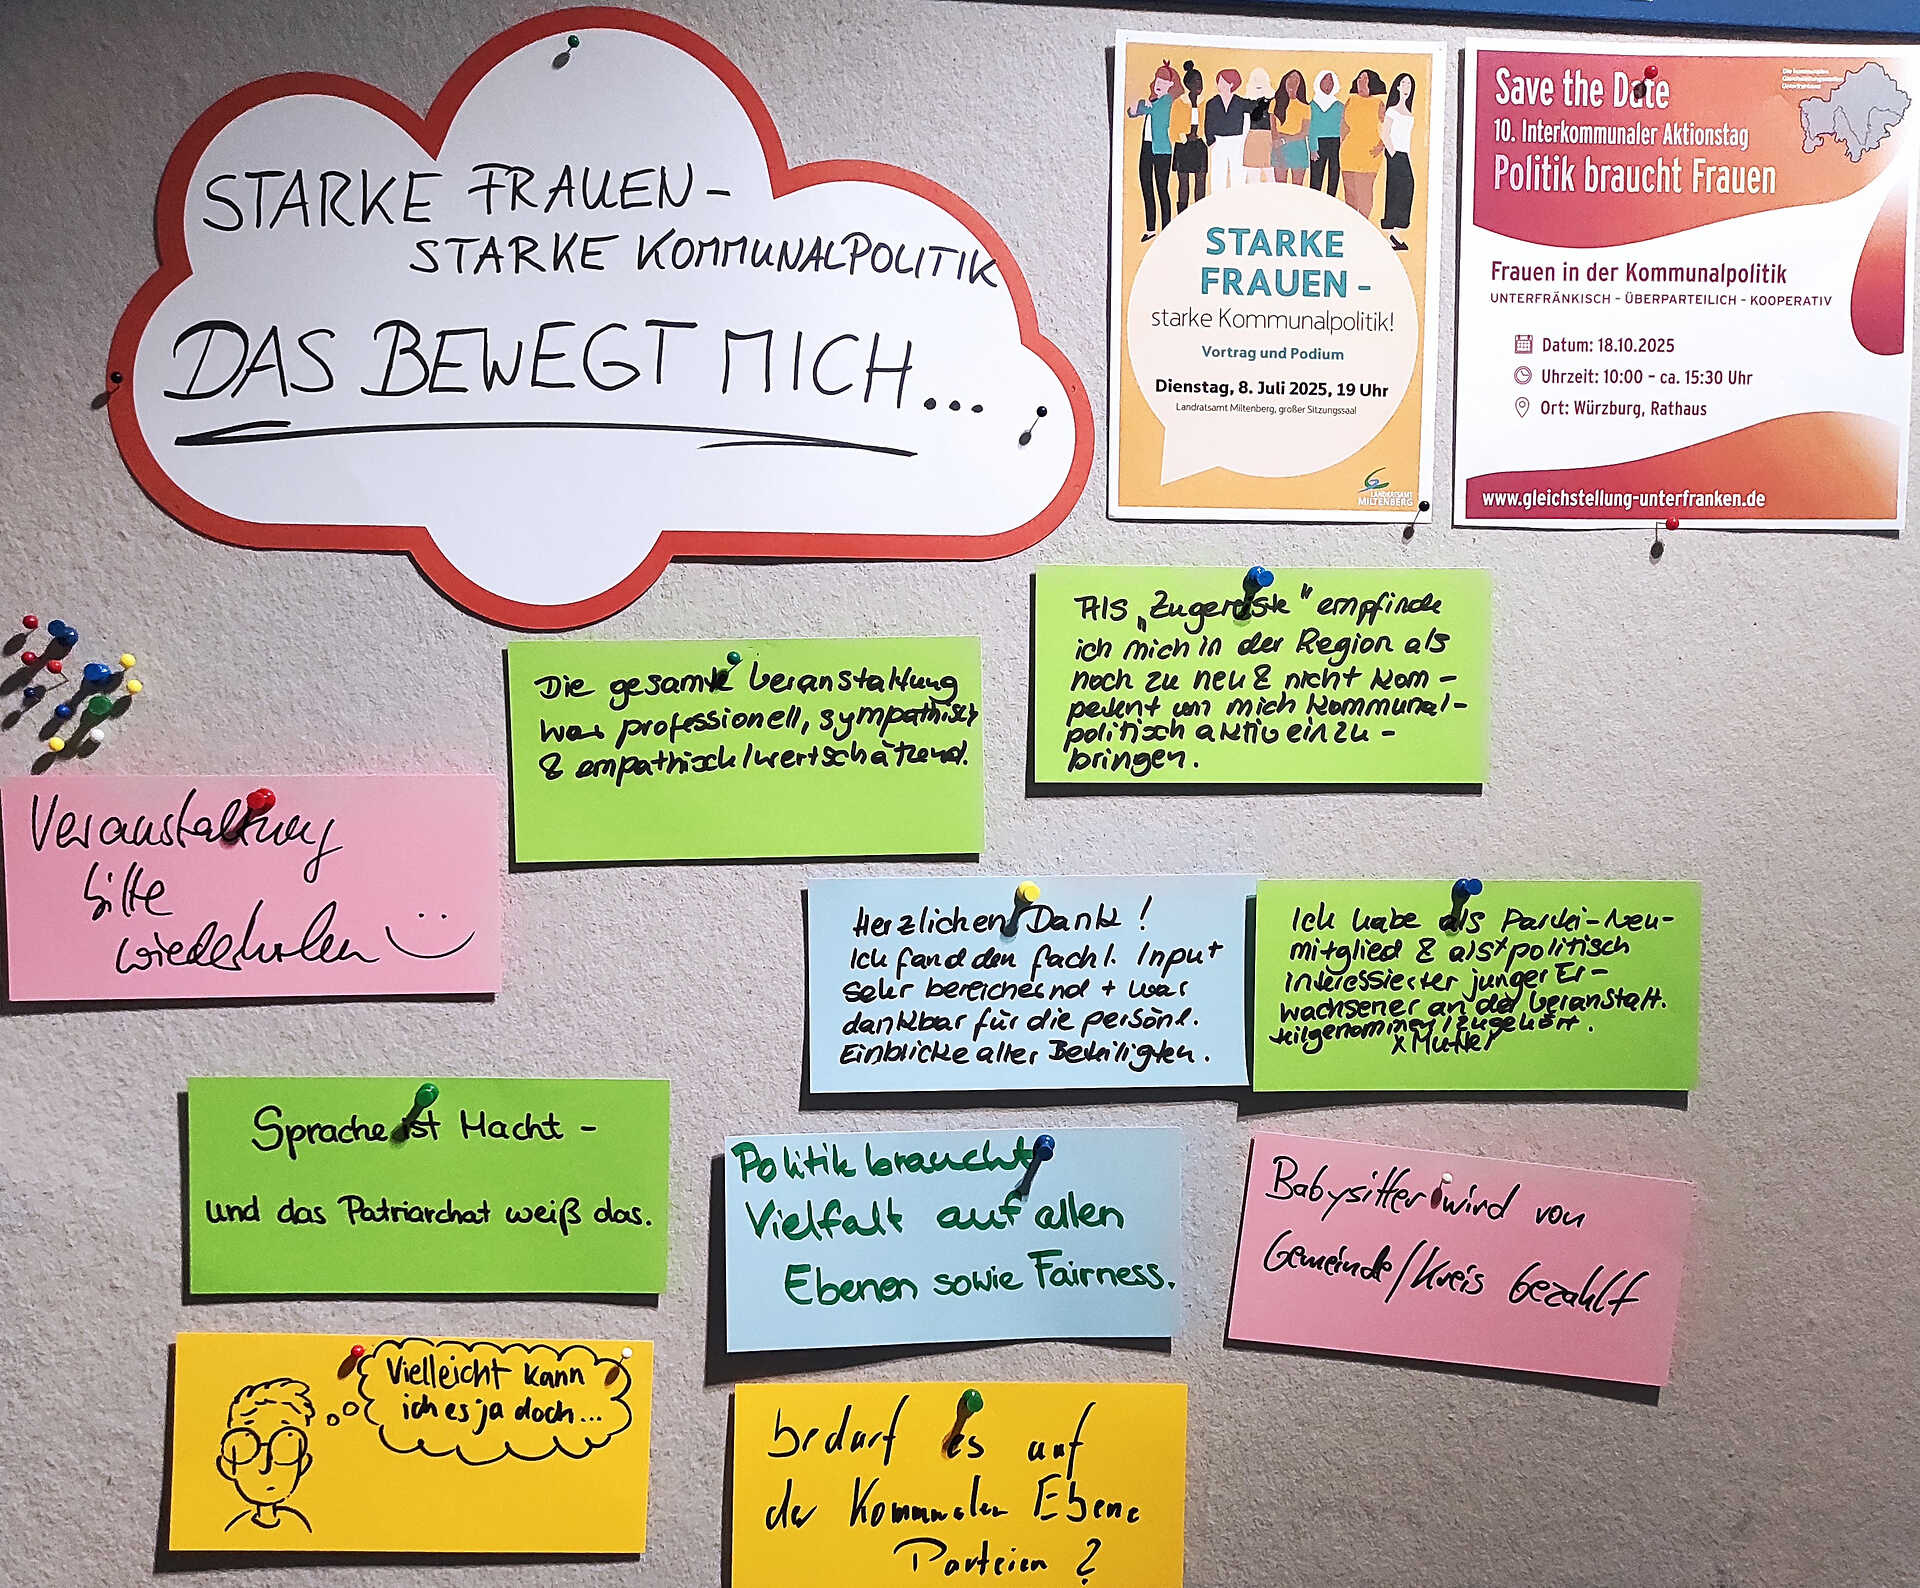 STARKE FRAUEN -
STARKE KOMMUNALPOLITIK
DAS BEWEGT MICH...
STARKE
FRAUEN -
starke Kommunalpolitik!
Vortrag und Podium
Dienstag, 8. Juli 2025, 19 Uhr
Landratsamt Miltenberg, großer Sitzungssaal
LANDRATSAMT
MILTENBERG
Save the Date
10. Interkommunaler Aktionstag
Politik braucht Frauen
Die kommunalen
Gleichstellungsstellen
Unterfranken
Frauen in der Kommunalpolitik
UNTERFRÄNKISCH - ÜBERPARTEILICH - KOOPERATIV
Datum: 18.10.2025
Uhrzeit: 10:00 - ca. 15:30 Uhr
Ort: Würzburg, Rathaus
www.gleichstellung-unterfranken.de
Als „Zugereiste" empfinde
ich mich in der Region als
noch zu neu & nicht kom-
petent um mich kommunal-
politisch aktiv einzu-
bringen.
Die gesamte Veranstaltung
war professionell, sympathisch
& empathisch/wertschätzend.
Veranstaltung
bitte
wiederholen
Herzlichen Dank!
Ich fand den fachl. Input
sehr bereichernd + war
dankbar für die persönl.
Einblicke aller Beteiligten.
Ich habe als Partei-Neu-
mitglied & als x politisch
interessierter junger Er-
wachsener an der Veranstalt.
teilgenommen/zugehört.
x Mutter
Sprache ist Macht -
und das Patriarchat weiß das.
Politik braucht
Vielfalt auf allen
Ebenen sowie Fairness.
Babysitter wird von
Gemeinde/Kreis bezahlt
Vielleicht kann
ich es ja doch...
bedarf es auf
der Kommunalen Ebene
Parteien ?